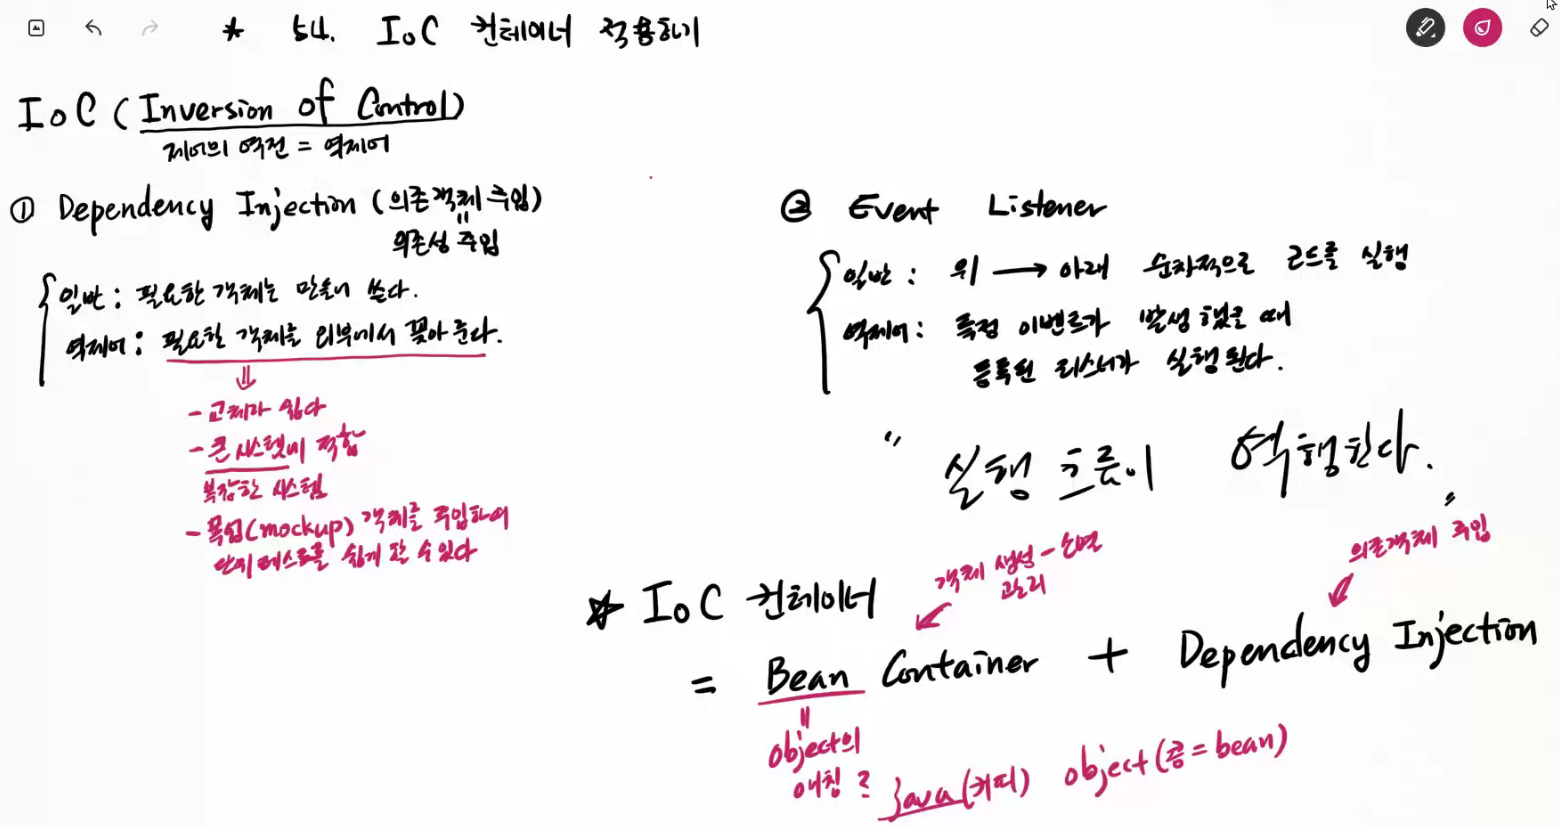 * 54. IoC 컨테이너 적용하기
IoC (Inversion of Control)
제어의 역전 = 역제어
① Dependency Injection (의존객체 주입)
=
의존성 주입
일반 : 필요한 객체는 만들어 쓴다.
역제어 : 필요한 객체를 외부에서 꽂아 준다.
⇓
- 교체가 쉽다
- 큰 시스템에 적합
복잡한 시스템
- 목업(mockup) 객체를 주입하여
단위 테스트를 쉽게 할 수 있다
② Event Listener
일반 : 위 → 아래 순차적으로 코드를 실행
역제어 : 특정 이벤트가 발생했을 때
등록된 리스너가 실행된다.
" 실행 흐름이 역행한다. "
* IoC 컨테이너
객체 생성 - 소멸
관리
의존객체 주입
= Bean Container + Dependency Injection
=
object의
애칭 :
java(커피) object(콩 = bean)